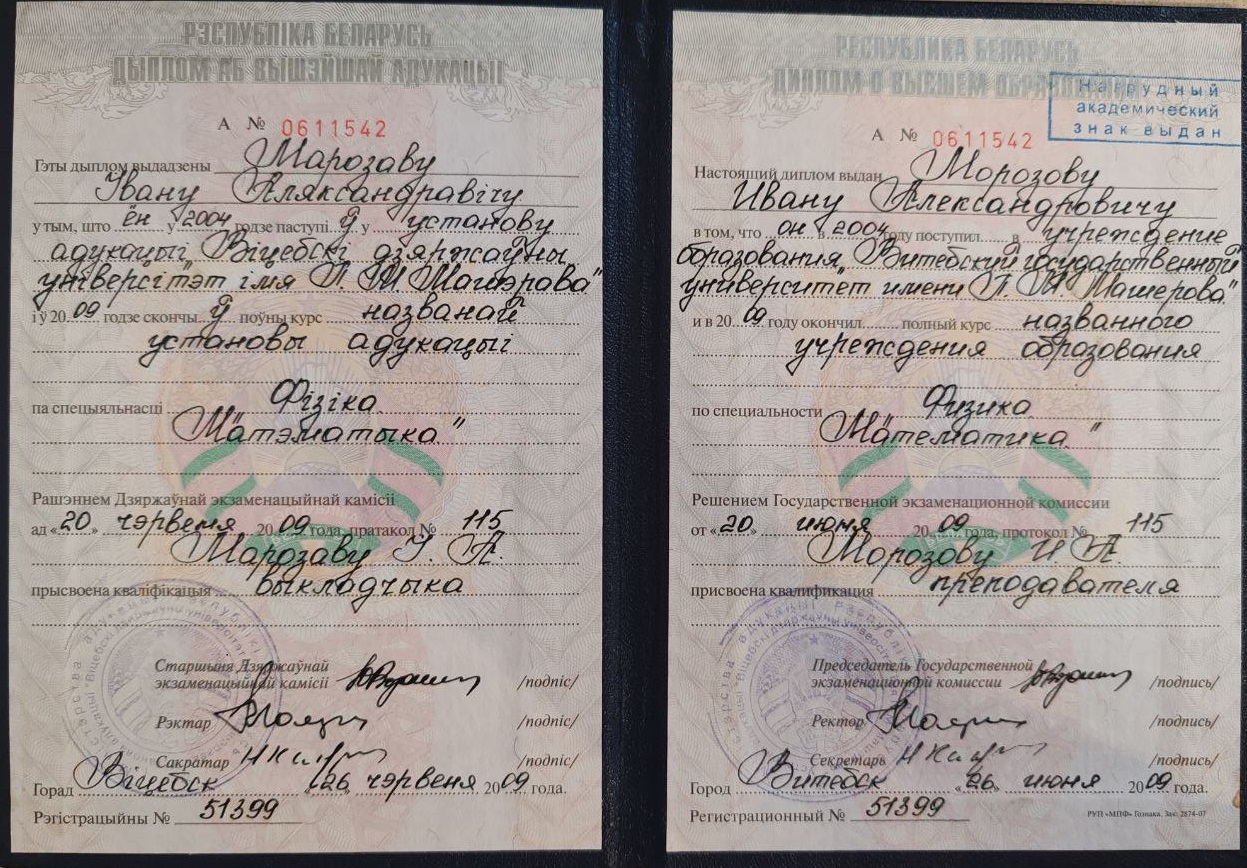 РЭСПУБЛІКА БЕЛАРУСЬ
ДЫПЛОМ АБ ВЫШЭЙШАЙ АДУКАЦЫІ
А № 0611542
Гэты дыплом выдадзены Марозаву
Івану Аляксандравічу
у тым, што ён у 2004 годзе паступіў у установу
адукацыі „Віцебскі дзяржаўны
універсітэт імя П. М. Машэрава“
і ў 2009 годзе скончыў поўны курс названай
установы адукацыі
па спецыяльнасці „Фізіка.
Матэматыка“
Рашэннем Дзяржаўнай экзаменацыйнай камісіі
ад «20» чэрвеня 2009 года, пратакол № 115
Марозаву І. А.
прысвоена кваліфікацыя выкладчыка
Старшыня Дзяржаўнай
экзаменацыйнай камісіі /подпіс/
Рэктар /подпіс/
Сакратар /подпіс/
Горад Віцебск «26» чэрвеня 2009 года.
Рэгістрацыйны № 51399
РЕСПУБЛИКА БЕЛАРУСЬ
ДИПЛОМ О ВЫСШЕМ ОБРАЗОВАНИИ
Нагрудный
академический
знак выдан
А № 0611542
Настоящий диплом выдан Морозову
Ивану Александровичу
в том, что он в 2004 году поступил в учреждение
образования „Витебский государственный
университет имени П. М. Машерова“
и в 2009 году окончил полный курс названного
учреждения образования
по специальности „Физика.
Математика“
Решением Государственной экзаменационной комиссии
от «20» июня 2009 года, протокол № 115
Морозову И. А.
присвоена квалификация преподавателя
Председатель Государственной
экзаменационной комиссии /подпись/
Ректор /подпись/
Секретарь /подпись/
Город Витебск «26» июня 2009 года.
Регистрационный № 51399
РУП «МПФ» Гознака. Зак. 2874-07